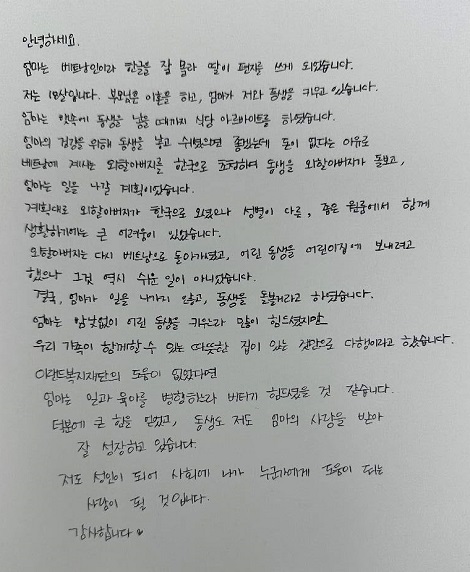 안녕하세요.
엄마는 베트남인이라 한글을 잘 몰라 딸이 편지를 쓰게 되었습니다.
저는 18살입니다. 부모님은 이혼을 하고, 엄마가 저와 동생을 키우고 있습니다.
엄마는 뱃속에 동생을 낳을 때까지 식당 아르바이트를 하였습니다.
엄마의 건강을 위해 동생을 낳고 쉬었으면 좋겠는데 돈이 없다는 이유로
베트남에 계시는 외할아버지를 한국으로 초청하여 동생을 외할아버지가 돌보고,
엄마는 일을 나갈 계획이었습니다.
계획대로 외할아버지가 한국으로 오셨으나 성별이 다른, 좁은 원룸에서 함께
생활하기에는 큰 어려움이 있었습니다.
외할아버지는 다시 베트남으로 돌아가셨고, 어린 동생을 어린이집에 보내려고
했으나 그것 역시 쉬운 일이 아니었습니다.
결국, 엄마가 일을 나가지 않고, 동생을 돌볼거라고 하였습니다.
엄마는 밤낮없이 어린 동생을 키우느라 많이 힘드셨지만
우리 가족이 함께할 수 있는 따뜻한 집이 있는 것만으로 다행이라고 했습니다.
이랜드복지재단의 도움이 없었다면
엄마는 일과 육아를 병행하느라 버티기 힘드셨을 것 같습니다.
덕분에 큰 힘을 얻었고, 동생도 저도 엄마의 사랑을 받아
잘 성장하고 있습니다.
저도 성인이 되어 사회에 나가 누군가에게 도움이 되는
사람이 될 것입니다.
감사합니다♥